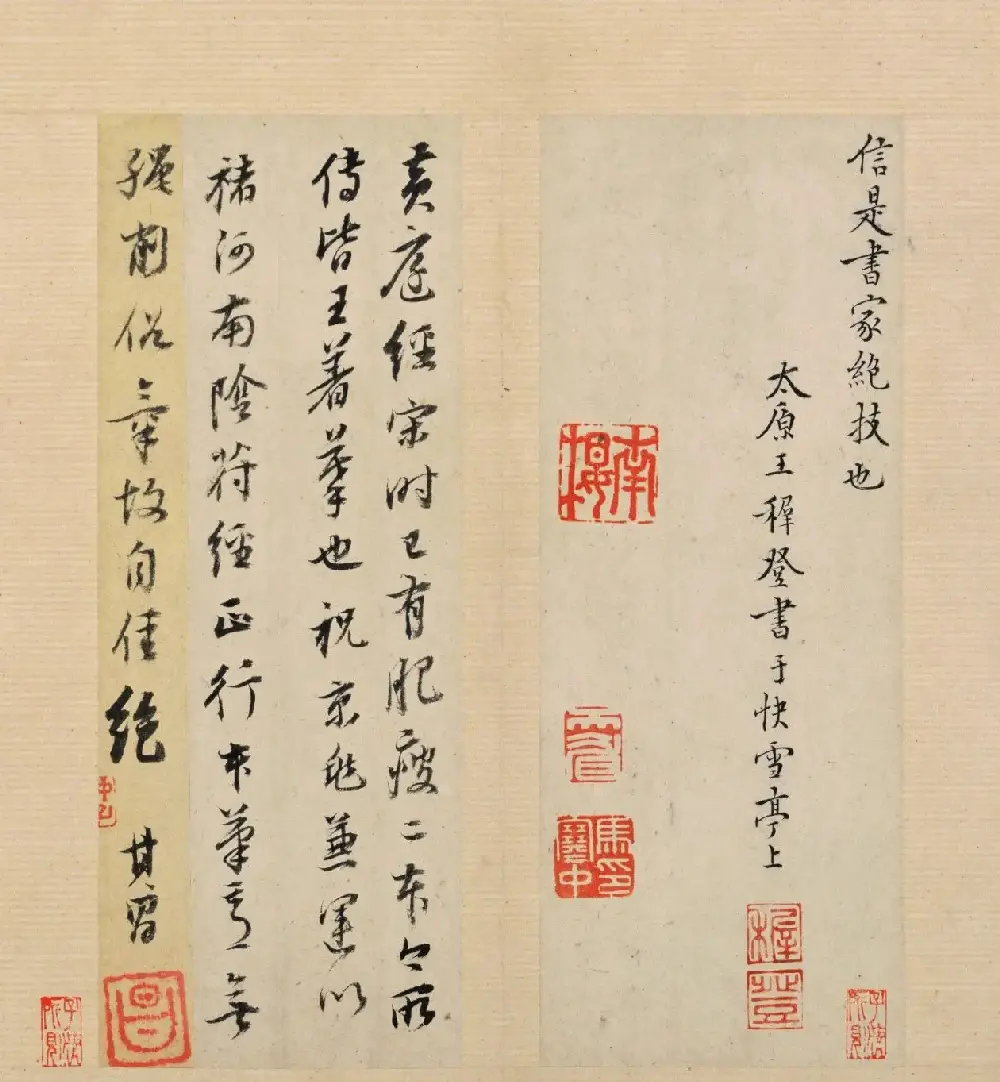 信是書家絕技也
太原王穉登書于快雪亭上
穉登
黃庭經宋時已有肥瘦二本今所
傳皆王著摹也祝京兆兼運以
褚河南陰符經正行本筆意無
俗氣故自佳絕 其昌
昌